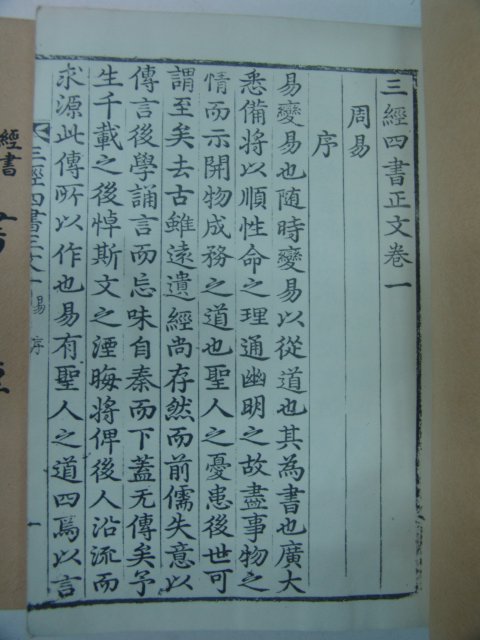 三經四書正文卷一
周易
序
易變易也隨時變易以從道也其為書也廣大
悉備將以順性命之理通幽明之故盡事物之
情而示開物成務之道也聖人之憂患後世可
謂至矣去古雖遠遺經尚存然而前儒失意以
傳言後學誦言而忘味自秦而下蓋无傳矣予
生千載之後悼斯文之湮晦將俾後人沿流而
求源此傳所以作也易有聖人之道四焉以言
三經四書正文 易 序 一
經書